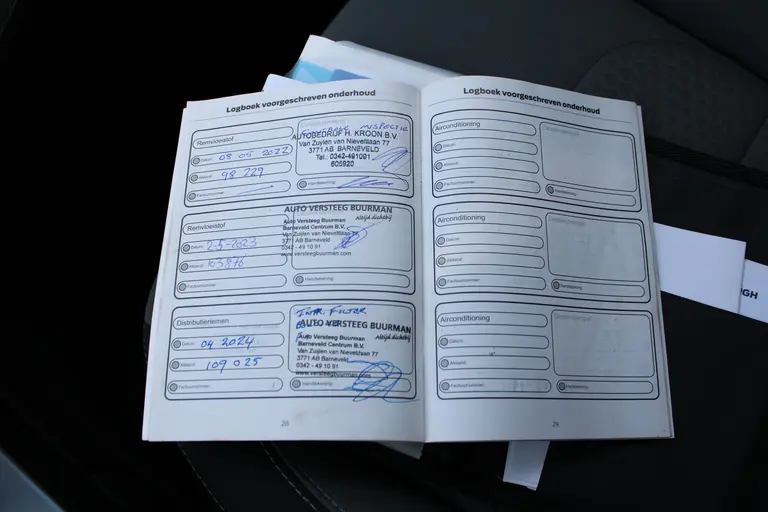 Logboek voorgeschreven onderhoud
Remvloeistof
Datum 08 05 2022
Afstand 98 229
Factuurnummer
AUTOBEDRIJF H. KROON B.V.
Van Zuylen van Nieveltlaan 77
3771 AB BARNEVELD
Tel.: 0342-491091
605920
Handtekening
Remvloeistof
Datum 2-5-2023
Afstand 103876
Factuurnummer
AUTO VERSTEEG BUURMAN
Altijd dichtbij
Auto Versteeg Buurman
Barneveld Centrum B.V.
Van Zuijlen van Nieveltlaan 77
3771 AB Barneveld
0342 - 49 10 91
www.versteegbuurman.com
Handtekening
Distributieriemen
Datum 04 2024
Afstand 109 025
Factuurnummer
INTR. FILTER
AUTO VERSTEEG BUURMAN
Altijd dichtbij
Auto Versteeg Buurman
Barneveld Centrum B.V.
Van Zuijlen van Nieveltlaan 77
3771 AB Barneveld
0342 - 49 10 91
www.versteegbuurman.com
Handtekening
28
Logboek voorgeschreven onderhoud
Airconditioning
Datum
Afstand
Factuurnummer
Handtekening
Airconditioning
Datum
Afstand
Factuurnummer
Handtekening
Airconditioning
Datum
Afstand
Factuurnummer
Handtekening
29